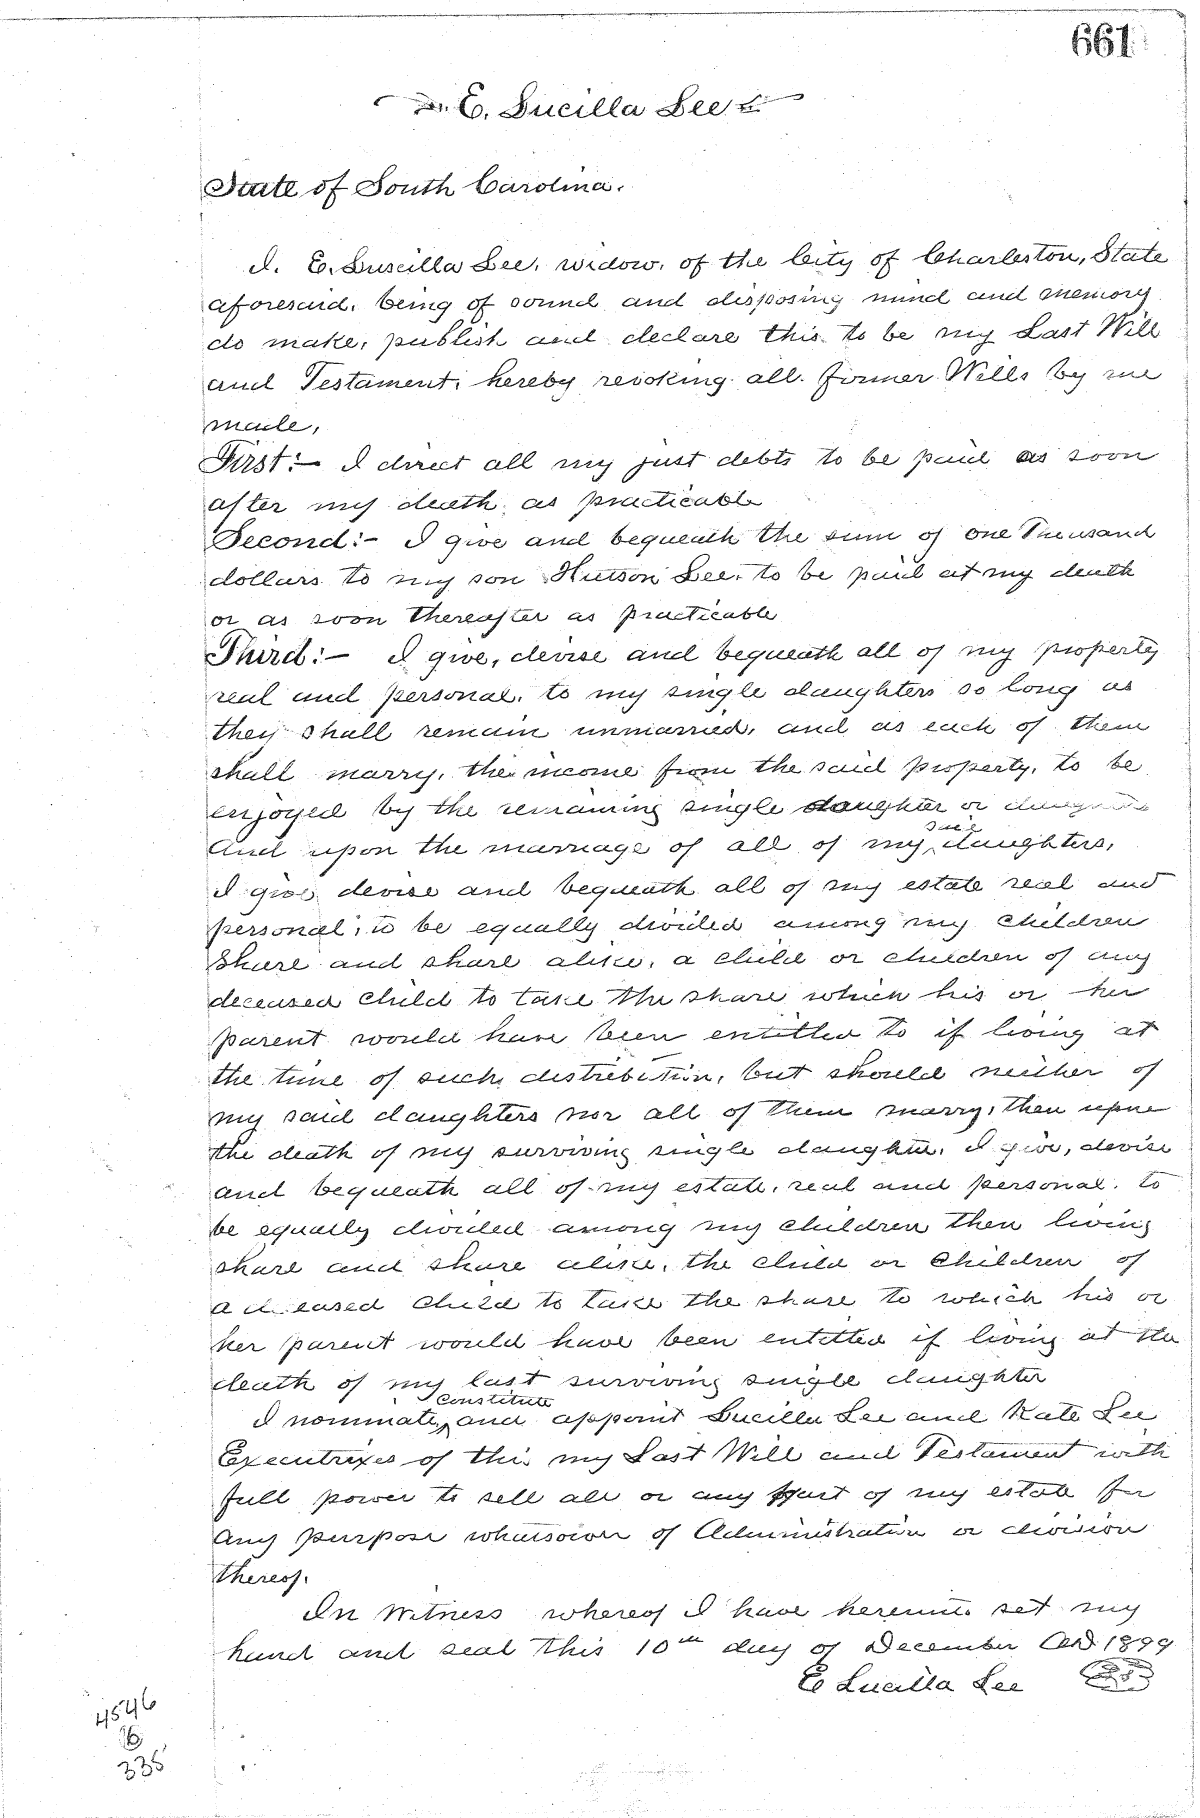 661
E. Lucilla Lee
State of South Carolina.
I. E. Luscilla Lee, widow, of the City of Charleston, State
aforesaid, being of sound and disposing mind and memory
do make, publish and declare this to be my Last Will
and Testament, hereby revoking all former Wills by me
made,
First:- I direct all my just debts to be paid as soon
after my death as practicable
Second:- I give and bequeath the sum of one Thousand
dollars to my son Hutson Lee, to be paid at my death
or as soon thereafter as practicable
Third:- I give, devise and bequeath all of my property
real and personal, to my single daughters so long as
they shall remain unmarried, and as each of them
shall marry, the income from the said property, to be
enjoyed by the remaining single daughter or daughters
And upon the marriage of all of my said daughters,
I give devise and bequeath all of my estate real and
personal, to be equally divided among my children
Share and share alike, a child or children of any
deceased child to take the share which his or her
parent would have been entitled to if living at
the time of such distribution, but should neither of
my said daughters nor all of them marry, then upon
the death of my surviving single daughter, I give, devise
and bequeath all of my estate, real and personal, to
be equally divided among my children then living
share and share alike, the child or children of
a deceased child to take the share to which his or
her parent would have been entitled if living at the
death of my last surviving single daughter
I nominate, constitute and appoint Lucilla Lee and Kate Lee
Executrixes of this my Last Will and Testament with
full power to sell all or any part of my estate for
any purpose whatsoever of Administration or division
thereof.
In Witness whereof I have hereunto set my
hand and seal this 10th day of December AD 1899
E Lucilla Lee
4546
16
335